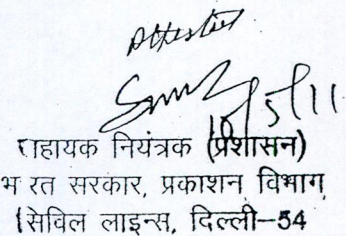 Attested
10/5/11
सहायक नियंत्रक (प्रशासन)
भ रत सरकार, प्रकाशन विभाग
सिविल लाइन्स, दिल्ली–54